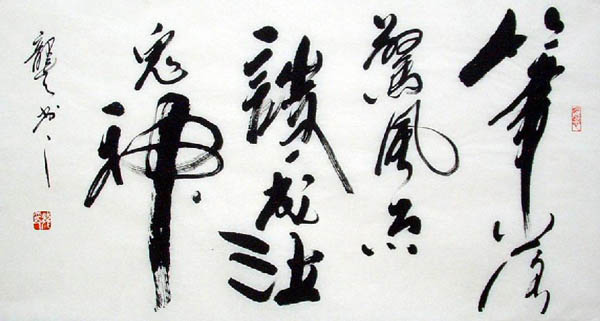 筆落
驚風雨
詩成泣
鬼神